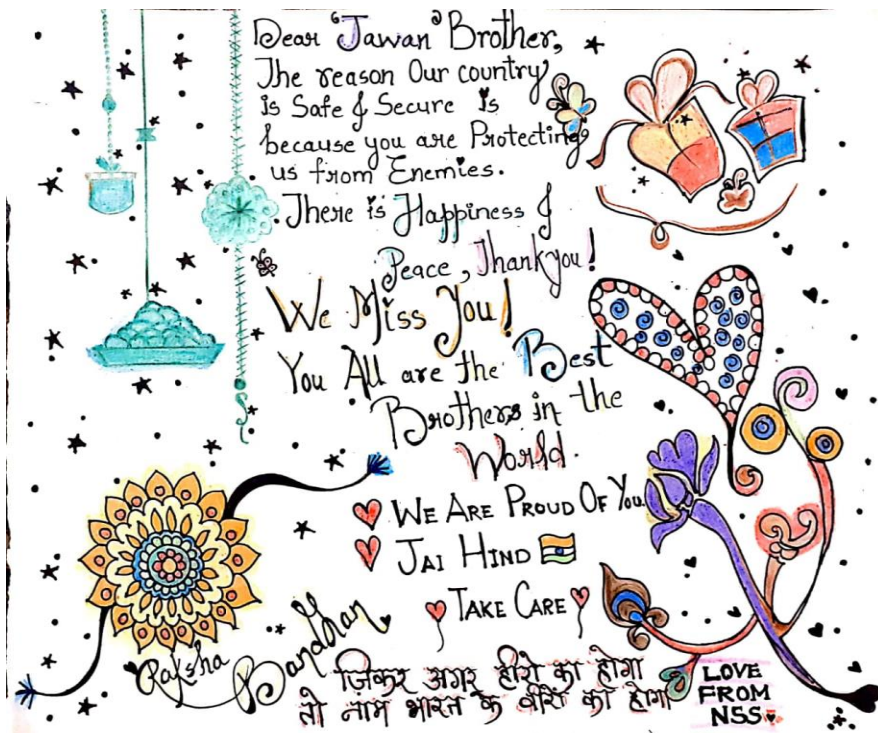 Dear 'Jawan' Brother,
The reason Our country
is Safe & Secure is
because you are Protecting
us from Enemies.
There is Happiness &
Peace, Thankyou!
We Miss You!
You All are the Best
Brothers in the
World.
We Are Proud Of You.
Jai Hind
Take Care
Raksha Bandhan
जिकर अगर हीरो का होगा
तो नाम भारत के वीरों का होगा
LOVE
FROM
NSS.